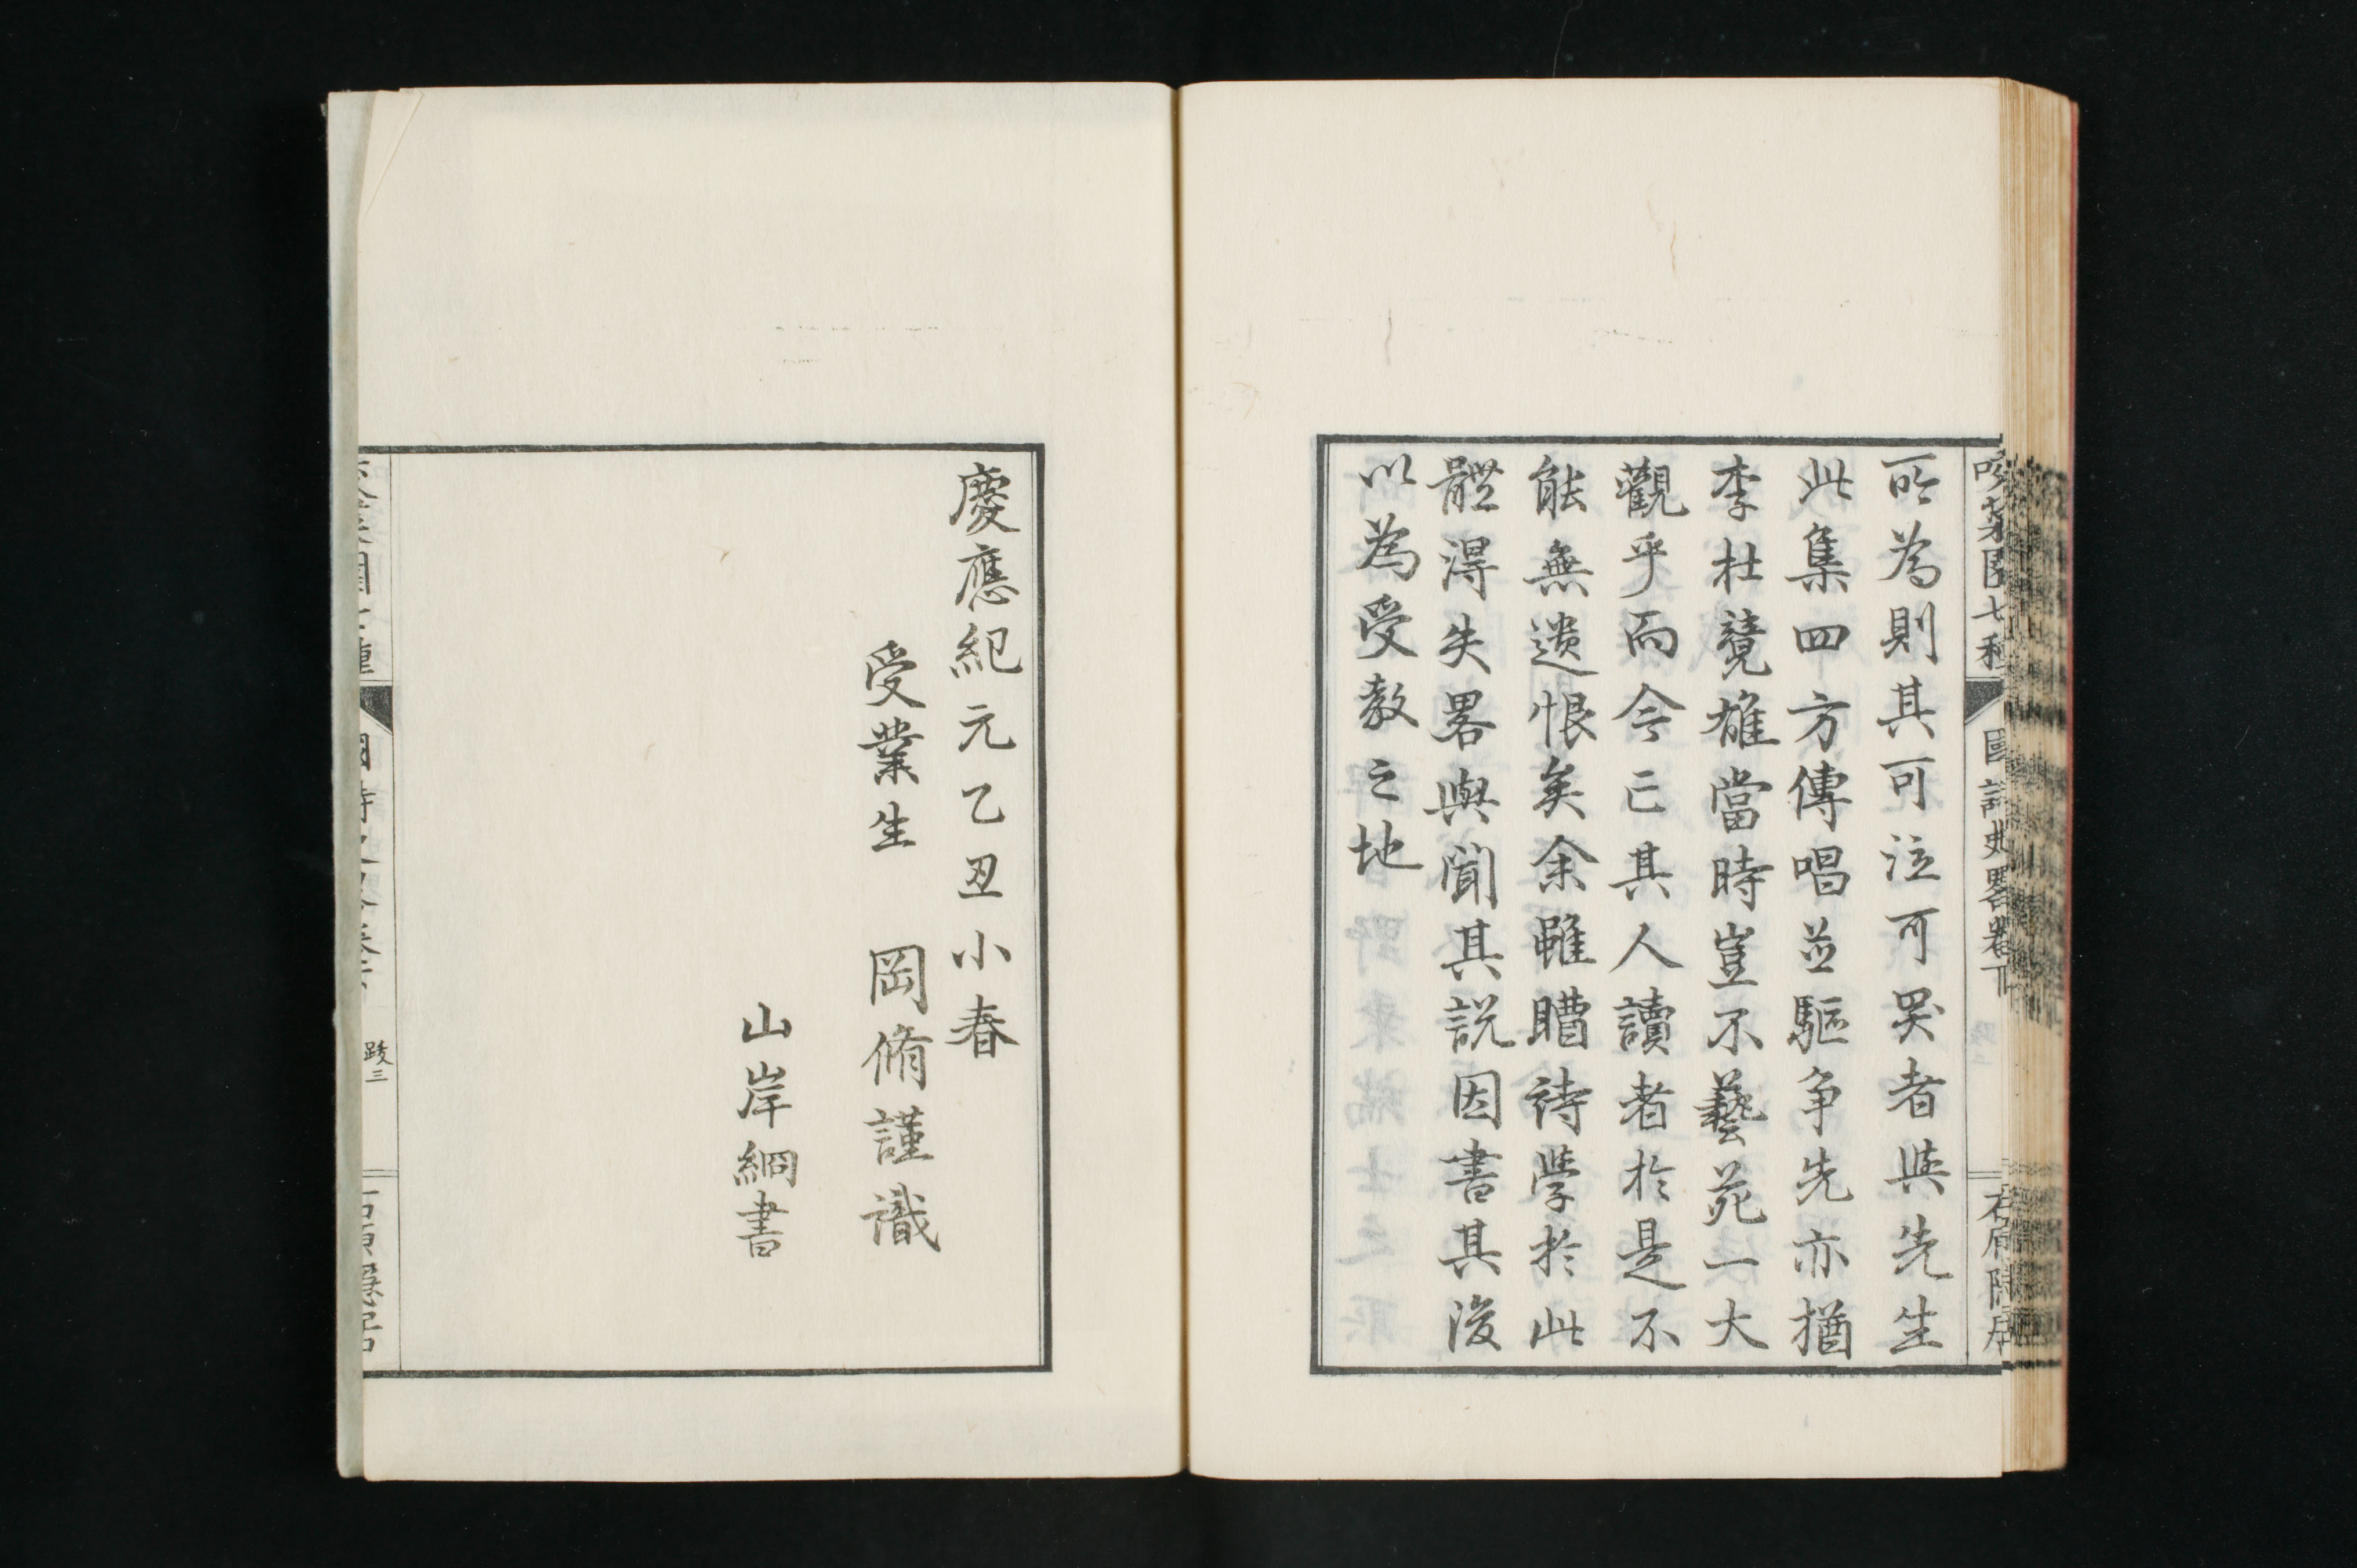 所為則其可泣可哭者與先生
此集四方傳唱並驅争先亦猶
李杜競雄當時豈不藝苑一大
觀乎而今亡其人讀者於是不
能無遺恨矣余雖瞶詩學於此
體得失畧與聞其説因書其後
以為受教之地
慶應紀元乙丑小春
受業生 岡脩謹識
山岸綱書
跋三